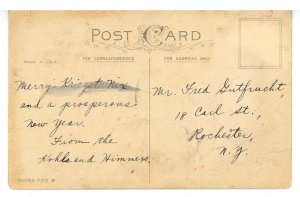 POST CARD
FOR CORRESPONDENCE
FOR ADDRESS ONLY
Merry
and a prosperous
New Year.
From the
Kohls and Himmers.
Mr. Fred Gutfrucht,
18 Carl St.,
Rochester,
N.Y.